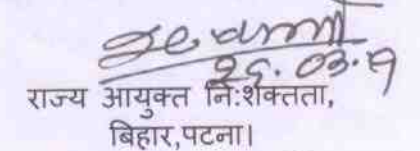 26.03.19
राज्य आयुक्त नि:शक्तता,
बिहार,पटना।